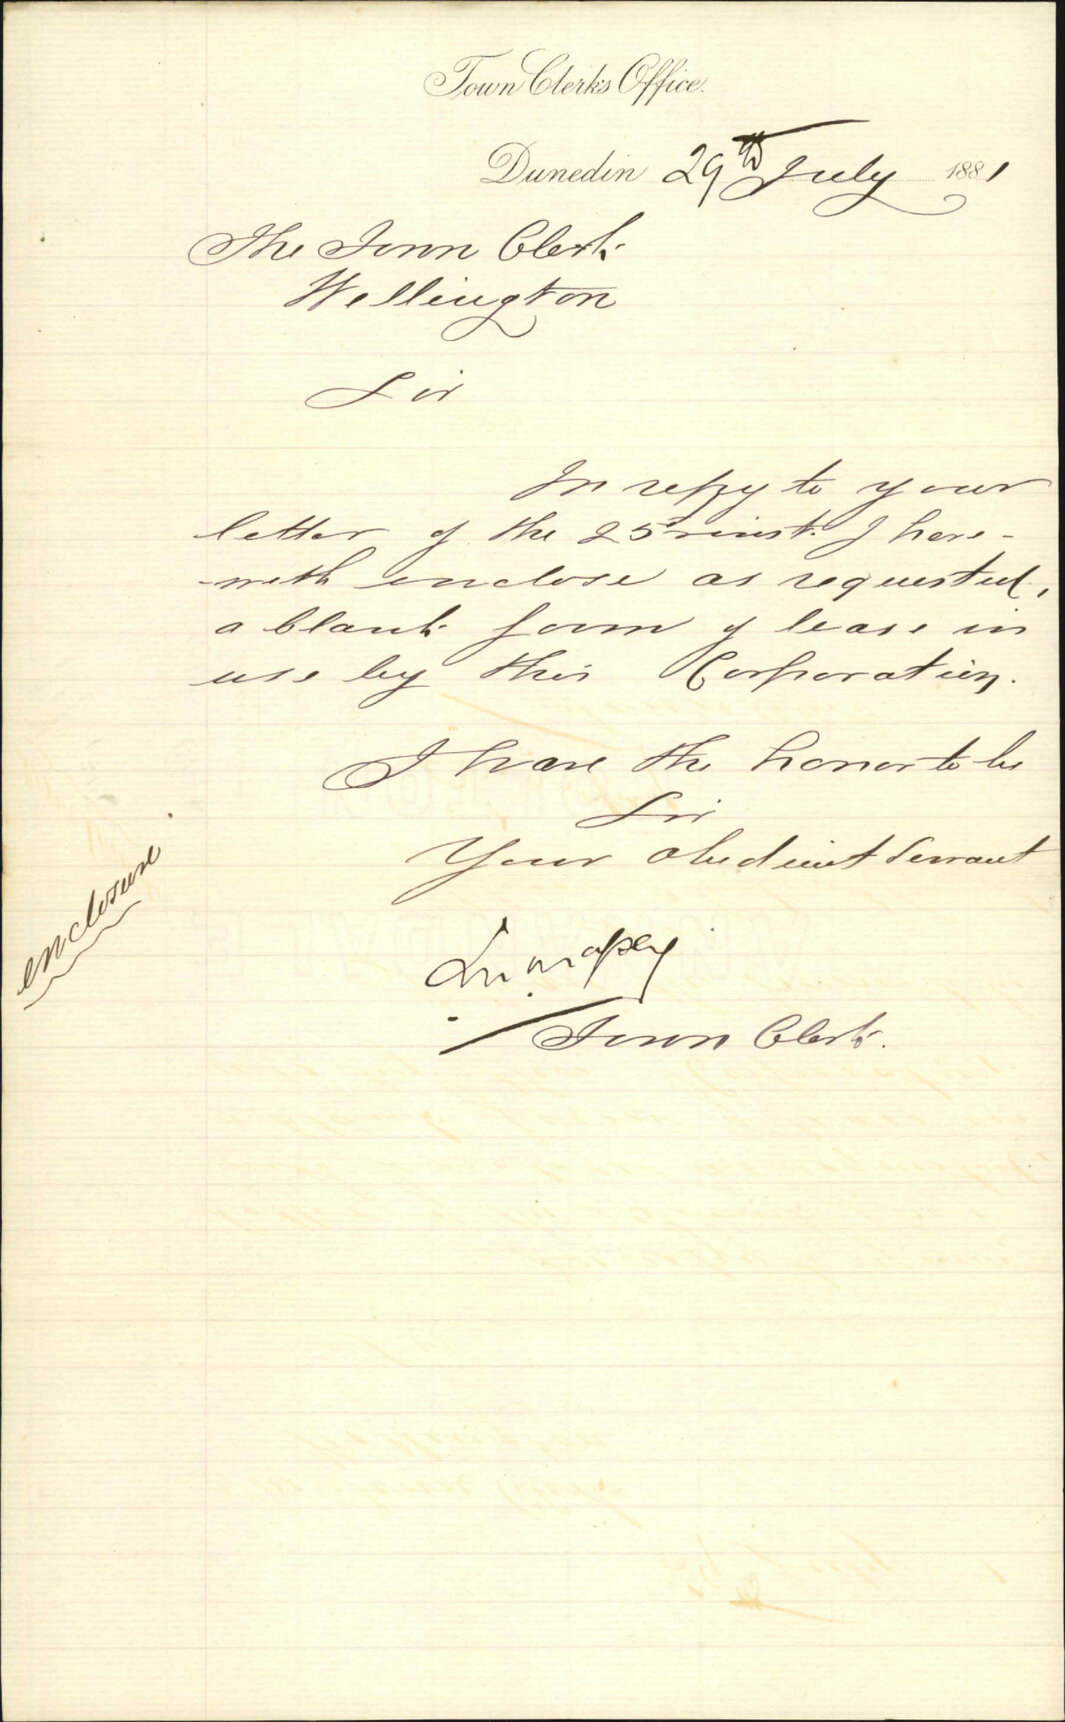 Town Clerk's Office.
Dunedin 29th July 1881
The Town Clerk
Wellington
Sir
In reply to your
letter of the 25th inst. I here-
-with enclose as requested,
a blank form of lease in
use by this Corporation.
I have the honor to be
Sir
Your obedient Servant
Town Clerk.
enclosure